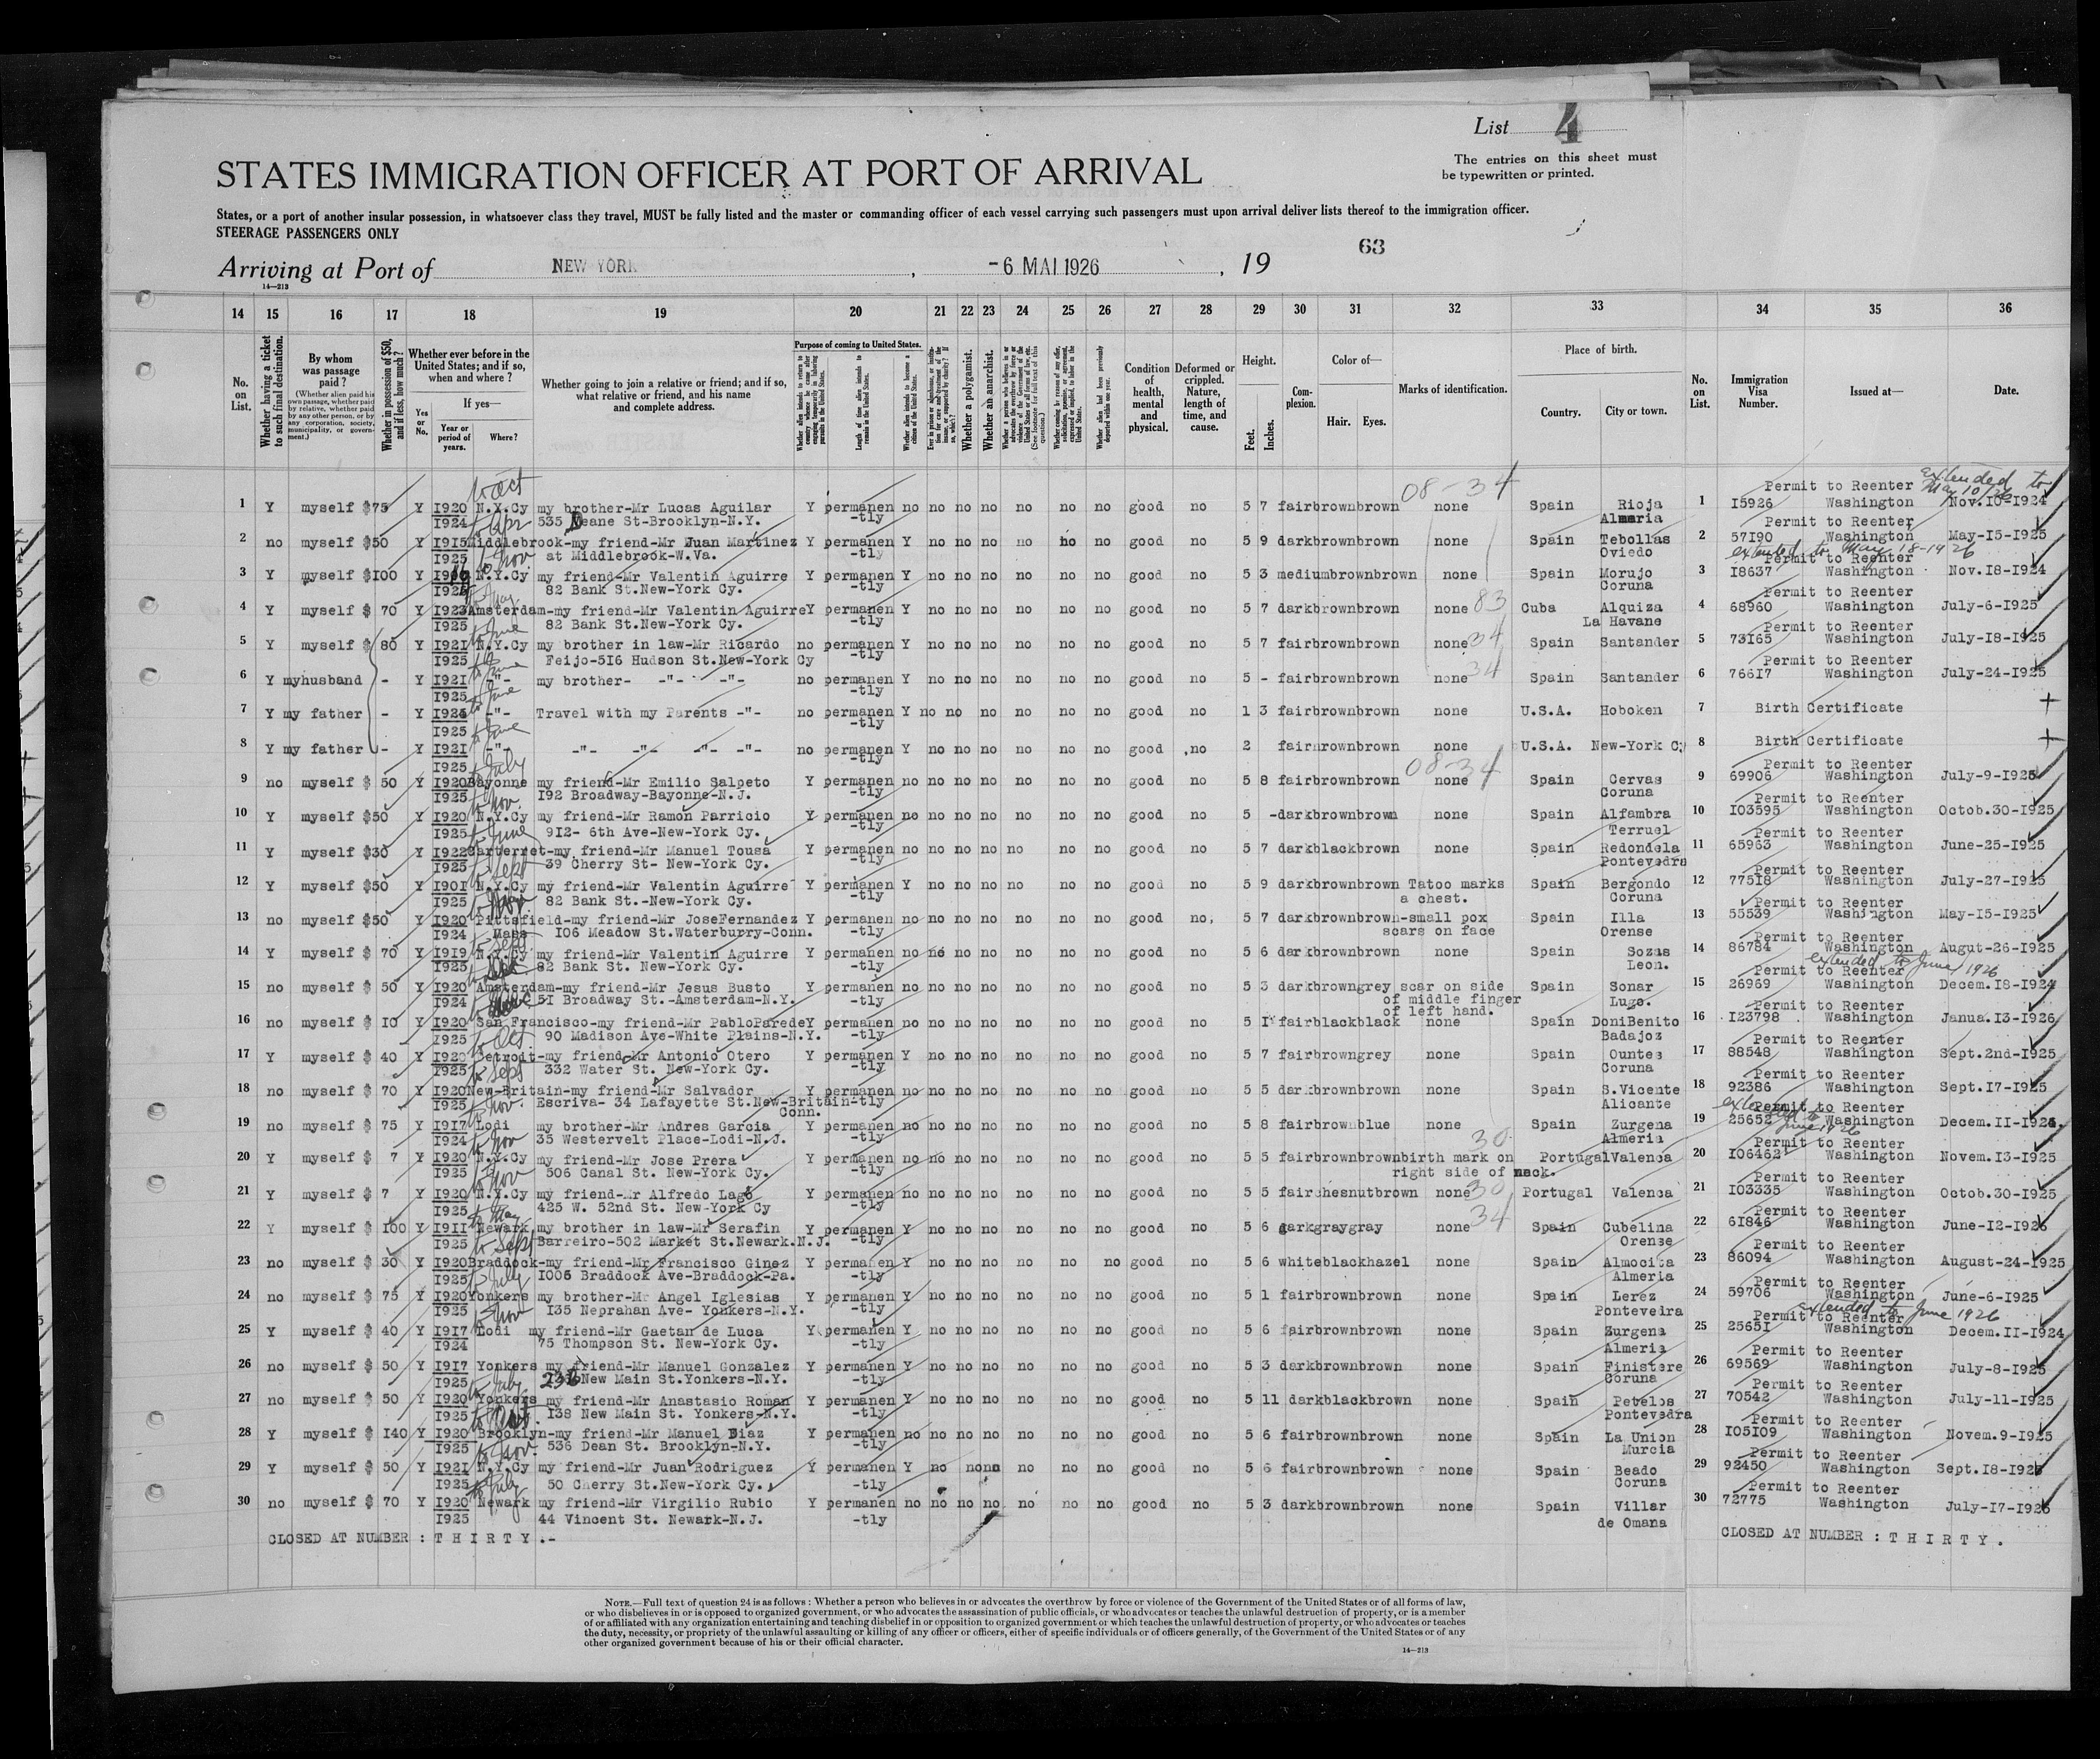 List 4
The entries on this sheet must
be typewritten or printed.
STATES IMMIGRATION OFFICER AT PORT OF ARRIVAL
States, or a port of another insular possession, in whatsoever class they travel, MUST be fully listed and the master or commanding officer of each vessel carrying such passengers must upon arrival deliver lists thereof to the immigration officer.
STEERAGE PASSENGERS ONLY
63
Arriving at Port of NEW YORK, -6 MAI 1926, 19
14—213
14 15 16 17 18 19 20 21 22 23 24 25 26 27 28 29 30 31 32 33 34 35 36
No. on List.
Whether having a ticket to such final destination.
By whom was passage paid?
(Whether alien paid his own passage, whether paid by relative, whether paid by any other person, or by any corporation, society, municipality, or government.)
Whether in possession of $50, and if less, how much?
Whether ever before in the United States; and if so, when and where?
If yes—
Yes or No. Year or period of years. Where?
Whether going to join a relative or friend; and if so, what relative or friend, and his name and complete address.
Purpose of coming to United States.
Length of time alien intends to remain in the United States.
Whether alien intends to become a citizen of the United States.
Whether a polygamist.
Whether an anarchist.
Condition of health, mental and physical.
Deformed or crippled. Nature, length of time, and cause.
Height. Feet. Inches.
Complexion.
Color of— Hair. Eyes.
Marks of identification.
Place of birth. Country. City or town.
No. on List.
Immigration Visa Number.
Issued at—
Date.
08-34 Permit to Reenter extended to May 10/26
1 Y myself $75 Y I920 N.Y.Cy my brother-Mr Lucas Aguilar Y permanen no no no no no no no good no 5 7 fair brown brown none Spain Rioja 1 I5926 Washington Nov.I0-I924
I924 535 Deane St-Brooklyn-N.Y. -tly Almeria Permit to Reenter
2 no myself $50 Y I9I5 Middlebrook-my friend-Mr Juan Martinez Y permanen Y no no no no no no good no 5 9 dark brown brown none Spain Tebollas 2 57I90 Washington May-I5-I925
I925 at Middlebrook-W.Va. -tly Oviedo extended to May 18-1926 Permit to Reenter
3 Y myself $I00 Y N.Y.Cy my friend-Mr Valentin Aguirre Y permanen Y no no no no no no good no 5 3 medium brown brown none Spain Morujo 3 I8637 Washington Nov.I8-I924
82 Bank St.New-York Cy. -tly Coruna Permit to Reenter
4 Y myself $ 70 Y I923 Amsterdam-my friend-Mr Valentin Aguirre Y permanen Y no no no no no no good no 5 7 dark brown brown none 83 Cuba Alquiza 4 68960 Washington July-6-I925
I925 82 Bank St.New-York Cy. -tly La Havane Permit to Reenter
5 Y myself $ 80 Y I92I N.Y.Cy my brother in law-Mr Ricardo no permanen Y no no no no no no good no 5 7 fair brown brown none 34 Spain Santander 5 73I65 Washington July-I8-I925
I925 Feijo-5I6 Hudson St.New-York Cy -tly Permit to Reenter
6 Y myhusband - Y I92I -"- my brother- -"- -"- no permanen Y no no no no no no good no 5 - fair brown brown none 34 Spain Santander 6 766I7 Washington July-24-I925
I925 -tly
7 Y my father - Y -"- Travel with my Parents -"- no permanen Y no no no no no no good no 1 3 fair brown brown none U.S.A. Hoboken 7 Birth Certificate
I925 -tly
8 Y my father - Y I92I -"- -"- -"- -"- -"- no permanen Y no no no no no no good no 2 fair brown brown none U.S.A. New-York C 8 Birth Certificate
I925 July -tly 08-34 Permit to Reenter
9 no myself $ 50 Y I920 Bayonne my friend-Mr Emilio Salpeto Y permanen no no no no no no no good no 5 8 fair brown brown none Spain Cervas 9 69906 Washington July-9-I925
I925 I92 Broadway-Bayonne-N.J. -tly Coruna Permit to Reenter
10 Y myself $50 Y I920 N.Y.Cy my friend-Mr Ramon Parricio Y permanen no no no no no no no good no 5 - dark brown brown none Spain Alfambra 10 I03595 Washington Octob.30-I925
I925 9I2- 6th Ave-New-York Cy. -tly Terruel Permit to Reenter
11 Y myself $30 Y I922 Carterret-my friend-Mr Manuel Tousa Y permanen no no no no no no no good no 5 7 dark black brown none Spain Redondela 11 65963 Washington June-25-I925
I925 39 Cherry St- New-York Cy. -tly Pontevedra Permit to Reenter
12 Y myself $50 Y I90I N.Y.Cy my friend-Mr Valentin Aguirre Y permanen Y no no no no no no good no 5 9 dark brown brown Tatoo marks Spain Bergondo 12 775I8 Washington July-27-I925
I925 82 Bank St.-New-York Cy. -tly a chest. Coruna Permit to Reenter
13 no myself $50 Y I920 Pittsfield-my friend-Mr JoseFernandez Y permanen no no no no no no no good no 5 7 dark brown brown-small pox Spain Illa 13 55539 Washington May-I5-I925
I924 Mass I06 Meadow St.Waterburry-Conn. -tly scars on face Orense Permit to Reenter
14 Y myself $ 70 Y I9I9 N.Y.Cy my friend-Mr Valentin Aguirre Y permanen no no no no no no no good no 5 6 dark brown brown none Spain Sozas 14 86784 Washington Augut-26-I925
I925 82 Bank St. New-York Cy. -tly Leon. extended to June 1926 Permit to Reenter
15 no myself $ 50 Y I920 Amsterdam-my friend-Mr Jesus Busto Y permanen no no no no no no no good no 5 3 dark brown grey scar on side Spain Sonar 15 26969 Washington Decem.I8-I924
I924 5I Broadway St.-Amsterdam-N.Y. -tly of middle finger Lugo. Permit to Reenter
of left hand.
16 no myself $ I0 Y I920 San Francisco-my friend-Mr PabloParede Y permanen no no no no no no no good no 5 fair black black none Spain DoniBenito 16 I23798 Washington Janua.I3-I926
I925 90 Madison Ave-White Plains-N.Y. -tly Badajoz Permit to Reenter
17 Y myself $ 40 Y I920 Detroit-my friend-Mr Antonio Otero Y permanen Y no no no no no no good no 5 7 fair brown grey none Spain Ountes 17 88548 Washington Sept.2nd-I925
I925 332 Water St. New-York Cy. -tly Coruna Permit to Reenter
18 no myself $ 70 Y I920 New-Britain-my friend-Mr Salvador Y permanen no no no no no no no good no 5 5 dark brown brown none Spain S.Vicente 18 92386 Washington Sept.I7-I925
I925 Escriva- 34 Lafayette St.New-Britain-tly Alicante Permit to Reenter
Conn.
19 no myself $ 75 Y I9I7 Lodi my brother-Mr Andres Garcia Y permanen no no no no no no no good no 5 8 fair brown blue none Spain Zurgena 19 25652 Washington Decem.II-I924
I924 35 Westervelt Place-Lodi-N.J. -tly 30 Almeria Permit to Reenter
20 Y myself $ 7 Y I920 N.Y.Cy my friend-Mr Jose Prera Y permanen no no no no no no no good no 5 5 fair brown brown birth mark on Portugal Valenca 20 I06462 Washington Novem.I3-I925
I925 506 Canal St. New-York Cy. -tly right side of neck. Permit to Reenter
21 Y myself $ 7 Y I920 N.Y.Cy my friend-Mr Alfredo Lago Y permanen no no no no no no no good no 5 5 fair chesnut brown none 30 Portugal Valenca 21 I03335 Washington Octob.30-I925
I925 425 W. 52nd St. New-York Cy -tly Permit to Reenter
22 Y myself $ I00 Y I9II Newark my brother in law-Mr Serafin Y permanen Y no no no no no no good no 5 6 dark gray gray none 34 Spain Cubelina 22 6I846 Washington June-I2-I925
I925 Barreiro-502 Market St.Newark.N.J. -tly Orense Permit to Reenter
23 no myself $ 30 Y I920 Braddock-my friend-Mr Francisco Ginez Y permanen Y no no no no no no good no 5 6 white black hazel none Spain Almocita 23 86094 Washington August-24-I925
I925 I005 Braddock Ave-Braddock-Pa. -tly Almeria Permit to Reenter
24 no myself $ 75 Y I920 Yonkers my brother-Mr Angel Iglesias Y permanen Y no no no no no no good no 5 1 fair brown brown none Spain Lerez 24 59706 Washington June-6-I925
I925 I35 Neprahan Ave- Yonkers-N.Y. -tly Pontevedra extended to June 1926 Permit to Reenter
25 Y myself $ 40 Y I9I7 Lodi my friend-Mr Gaetan de Luca Y permanen Y no no no no no no good no 5 6 fair brown brown none Spain Zurgena 25 2565I Washington Decem.II-I924
I924 75 Thompson St. New-York Cy. -tly Almeria Permit to Reenter
26 no myself $ 50 Y I9I7 Yonkers my friend-Mr Manuel Gonzalez Y permanen Y no no no no no no good no 5 3 dark brown brown none Spain Finistere 26 69569 Washington July-8-I925
I925 236 New Main St.Yonkers-N.Y. -tly Coruna Permit to Reenter
27 no myself $ 50 Y I920 Yonkers my friend-Mr Anastasio Roman Y permanen Y no no no no no no good no 5 11 dark black brown none Spain Petelos 27 70542 Washington July-11-I925
I925 I38 New Main St. Yonkers-N.Y. -tly Pontevedra Permit to Reenter
28 Y myself $ I40 Y I920 Brooklyn-my friend-Mr Manuel Diaz Y permanen no no no no no no no good no 5 6 fair brown brown none Spain La Union 28 I05I09 Washington Novem.9-I925
I925 536 Dean St. Brooklyn-N.Y. -tly Murcia Permit to Reenter
29 Y myself $ 50 Y I92I N.Y.Cy my friend-Mr Juan Rodriguez Y permanen Y no no no no no no good no 5 6 fair brown brown none Spain Beado 29 92450 Washington Sept.I8-I925
I925 50 Cherry St.New-York Cy. -tly Coruna Permit to Reenter
30 no myself $ 70 Y I920 Newark my friend-Mr Virgilio Rubio Y permanen no no no no no no no good no 5 3 dark brown brown none Spain Villar 30 72775 Washington July-I7-I925
I925 44 Vincent St. Newark-N.J. -tly de Omana
CLOSED AT NUMBER : T H I R T Y .- CLOSED AT NUMBER : T H I R T Y .
NOTE.—Full text of question 24 is as follows: Whether a person who believes in or advocates the overthrow by force or violence of the Government of the United States or of all forms of law,
or who disbelieves in or is opposed to organized government, or who advocates the assassination of public officials, or who advocates or teaches the unlawful destruction of property, or is a member
of or affiliated with any organization entertaining and teaching disbelief in or opposition to organized government or which teaches the unlawful destruction of property, or who advocates or teaches
the duty, necessity, or propriety of the unlawful assaulting or killing of any officer or officers, either of specific individuals or of officers generally, of the Government of the United States or of any
other organized government because of his or their official character.
14—213